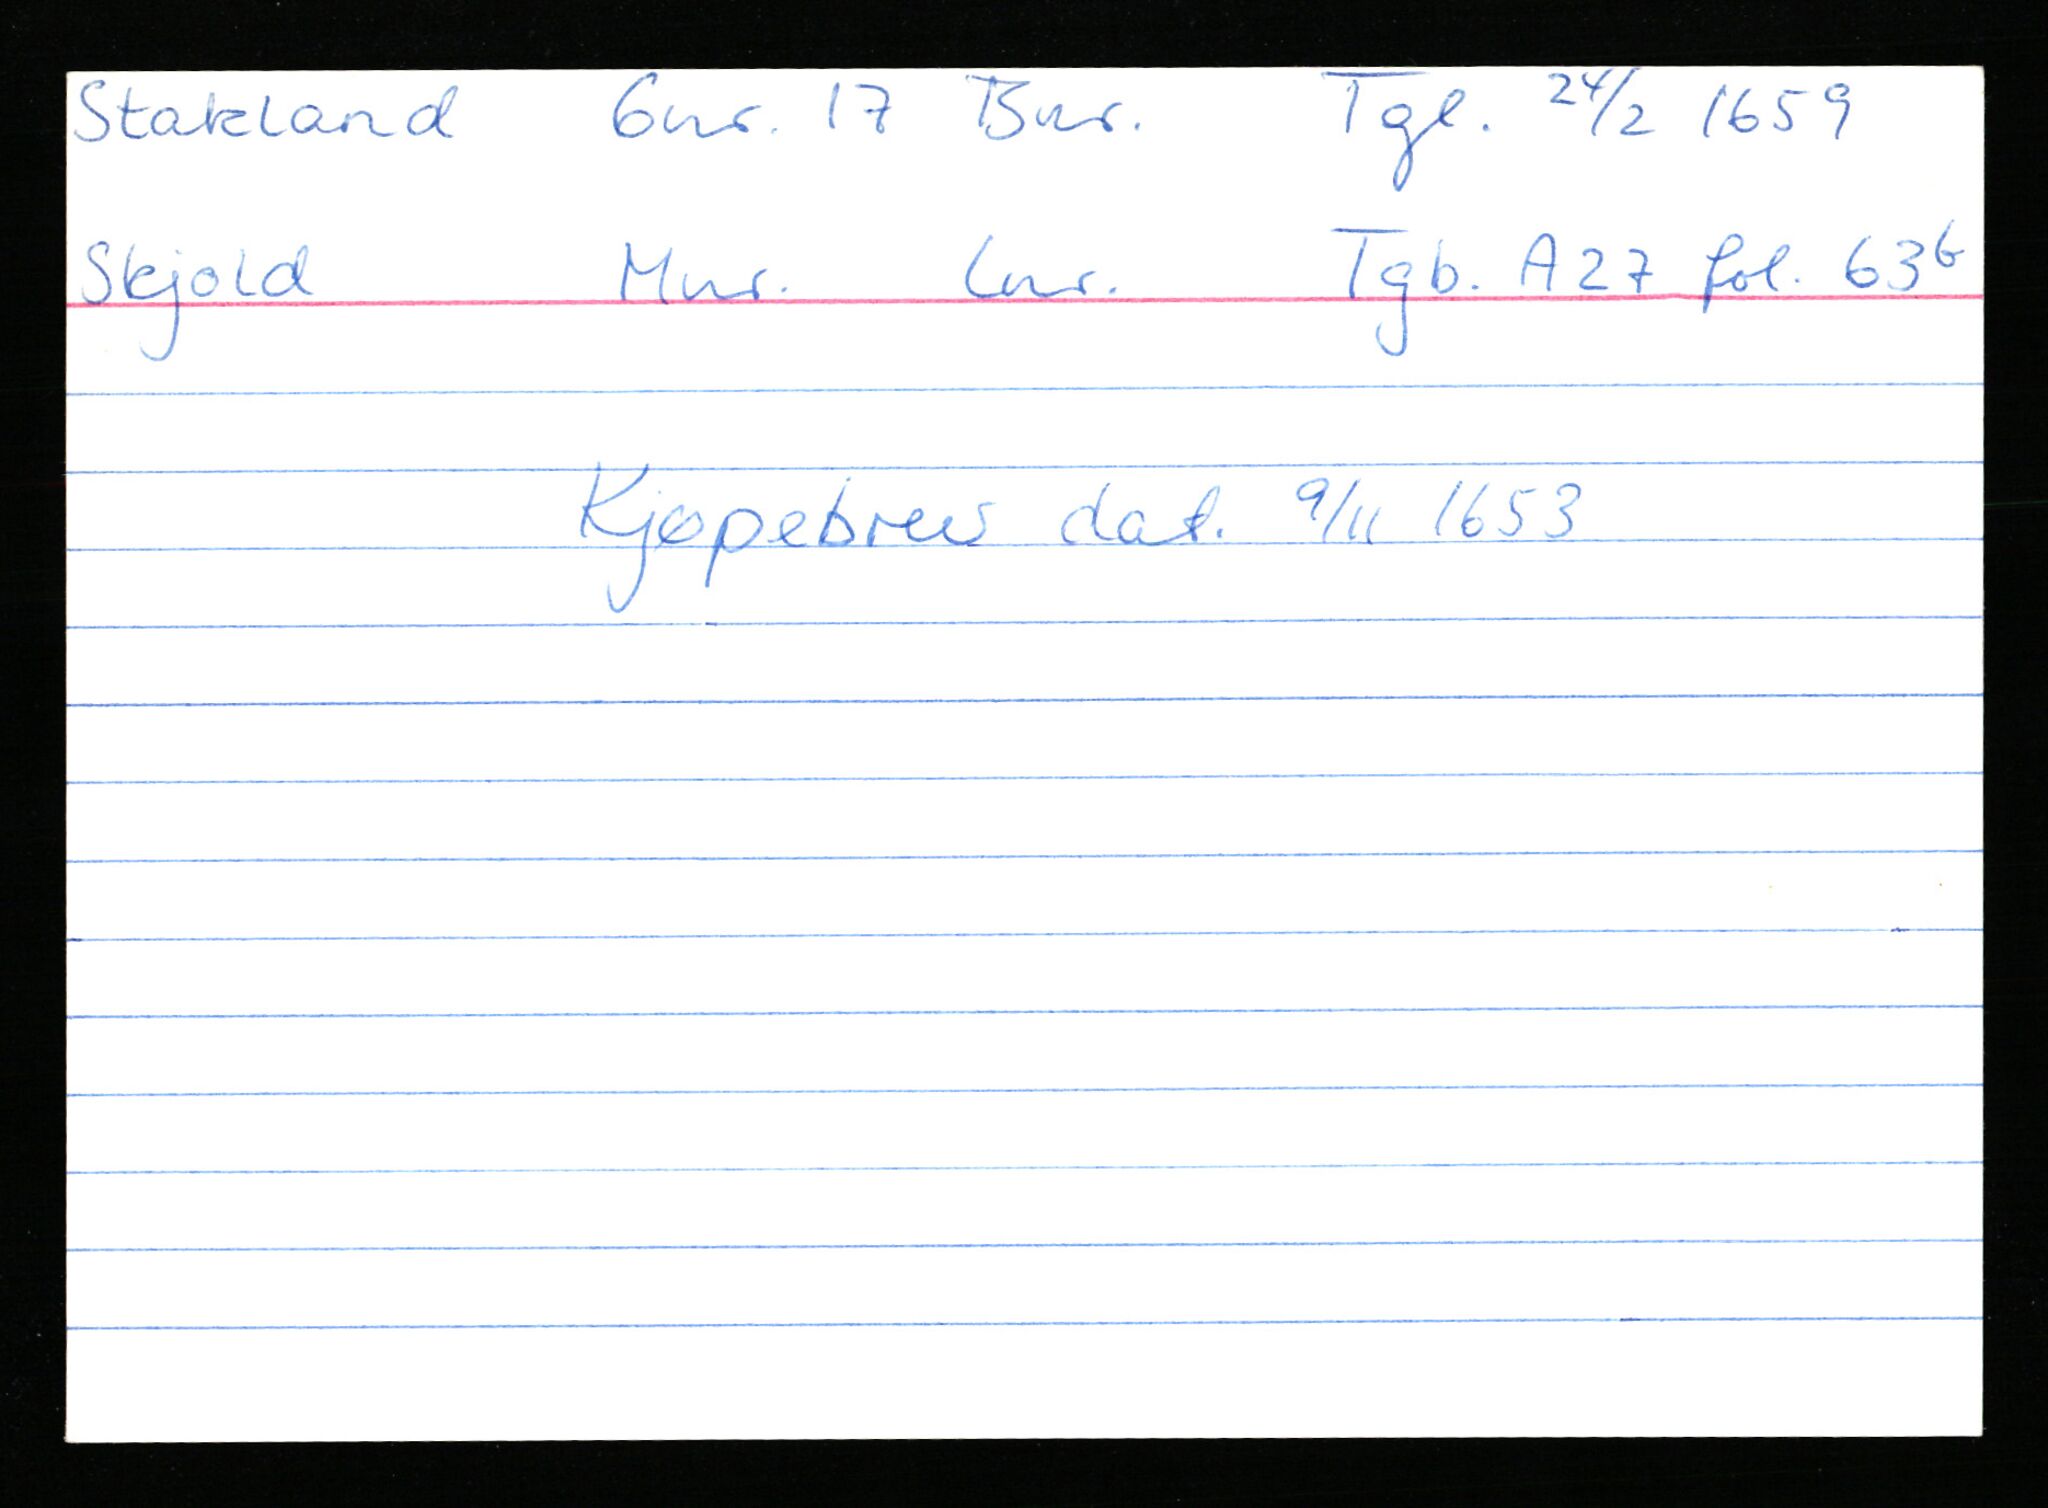 Stakland Gnr. 17 Bnr. Tgl. 24/2 1659
Skjold Mnr. Lnr. Tgb. A27 fol. 63b
Kjøpebrev dat. 9/11 1653